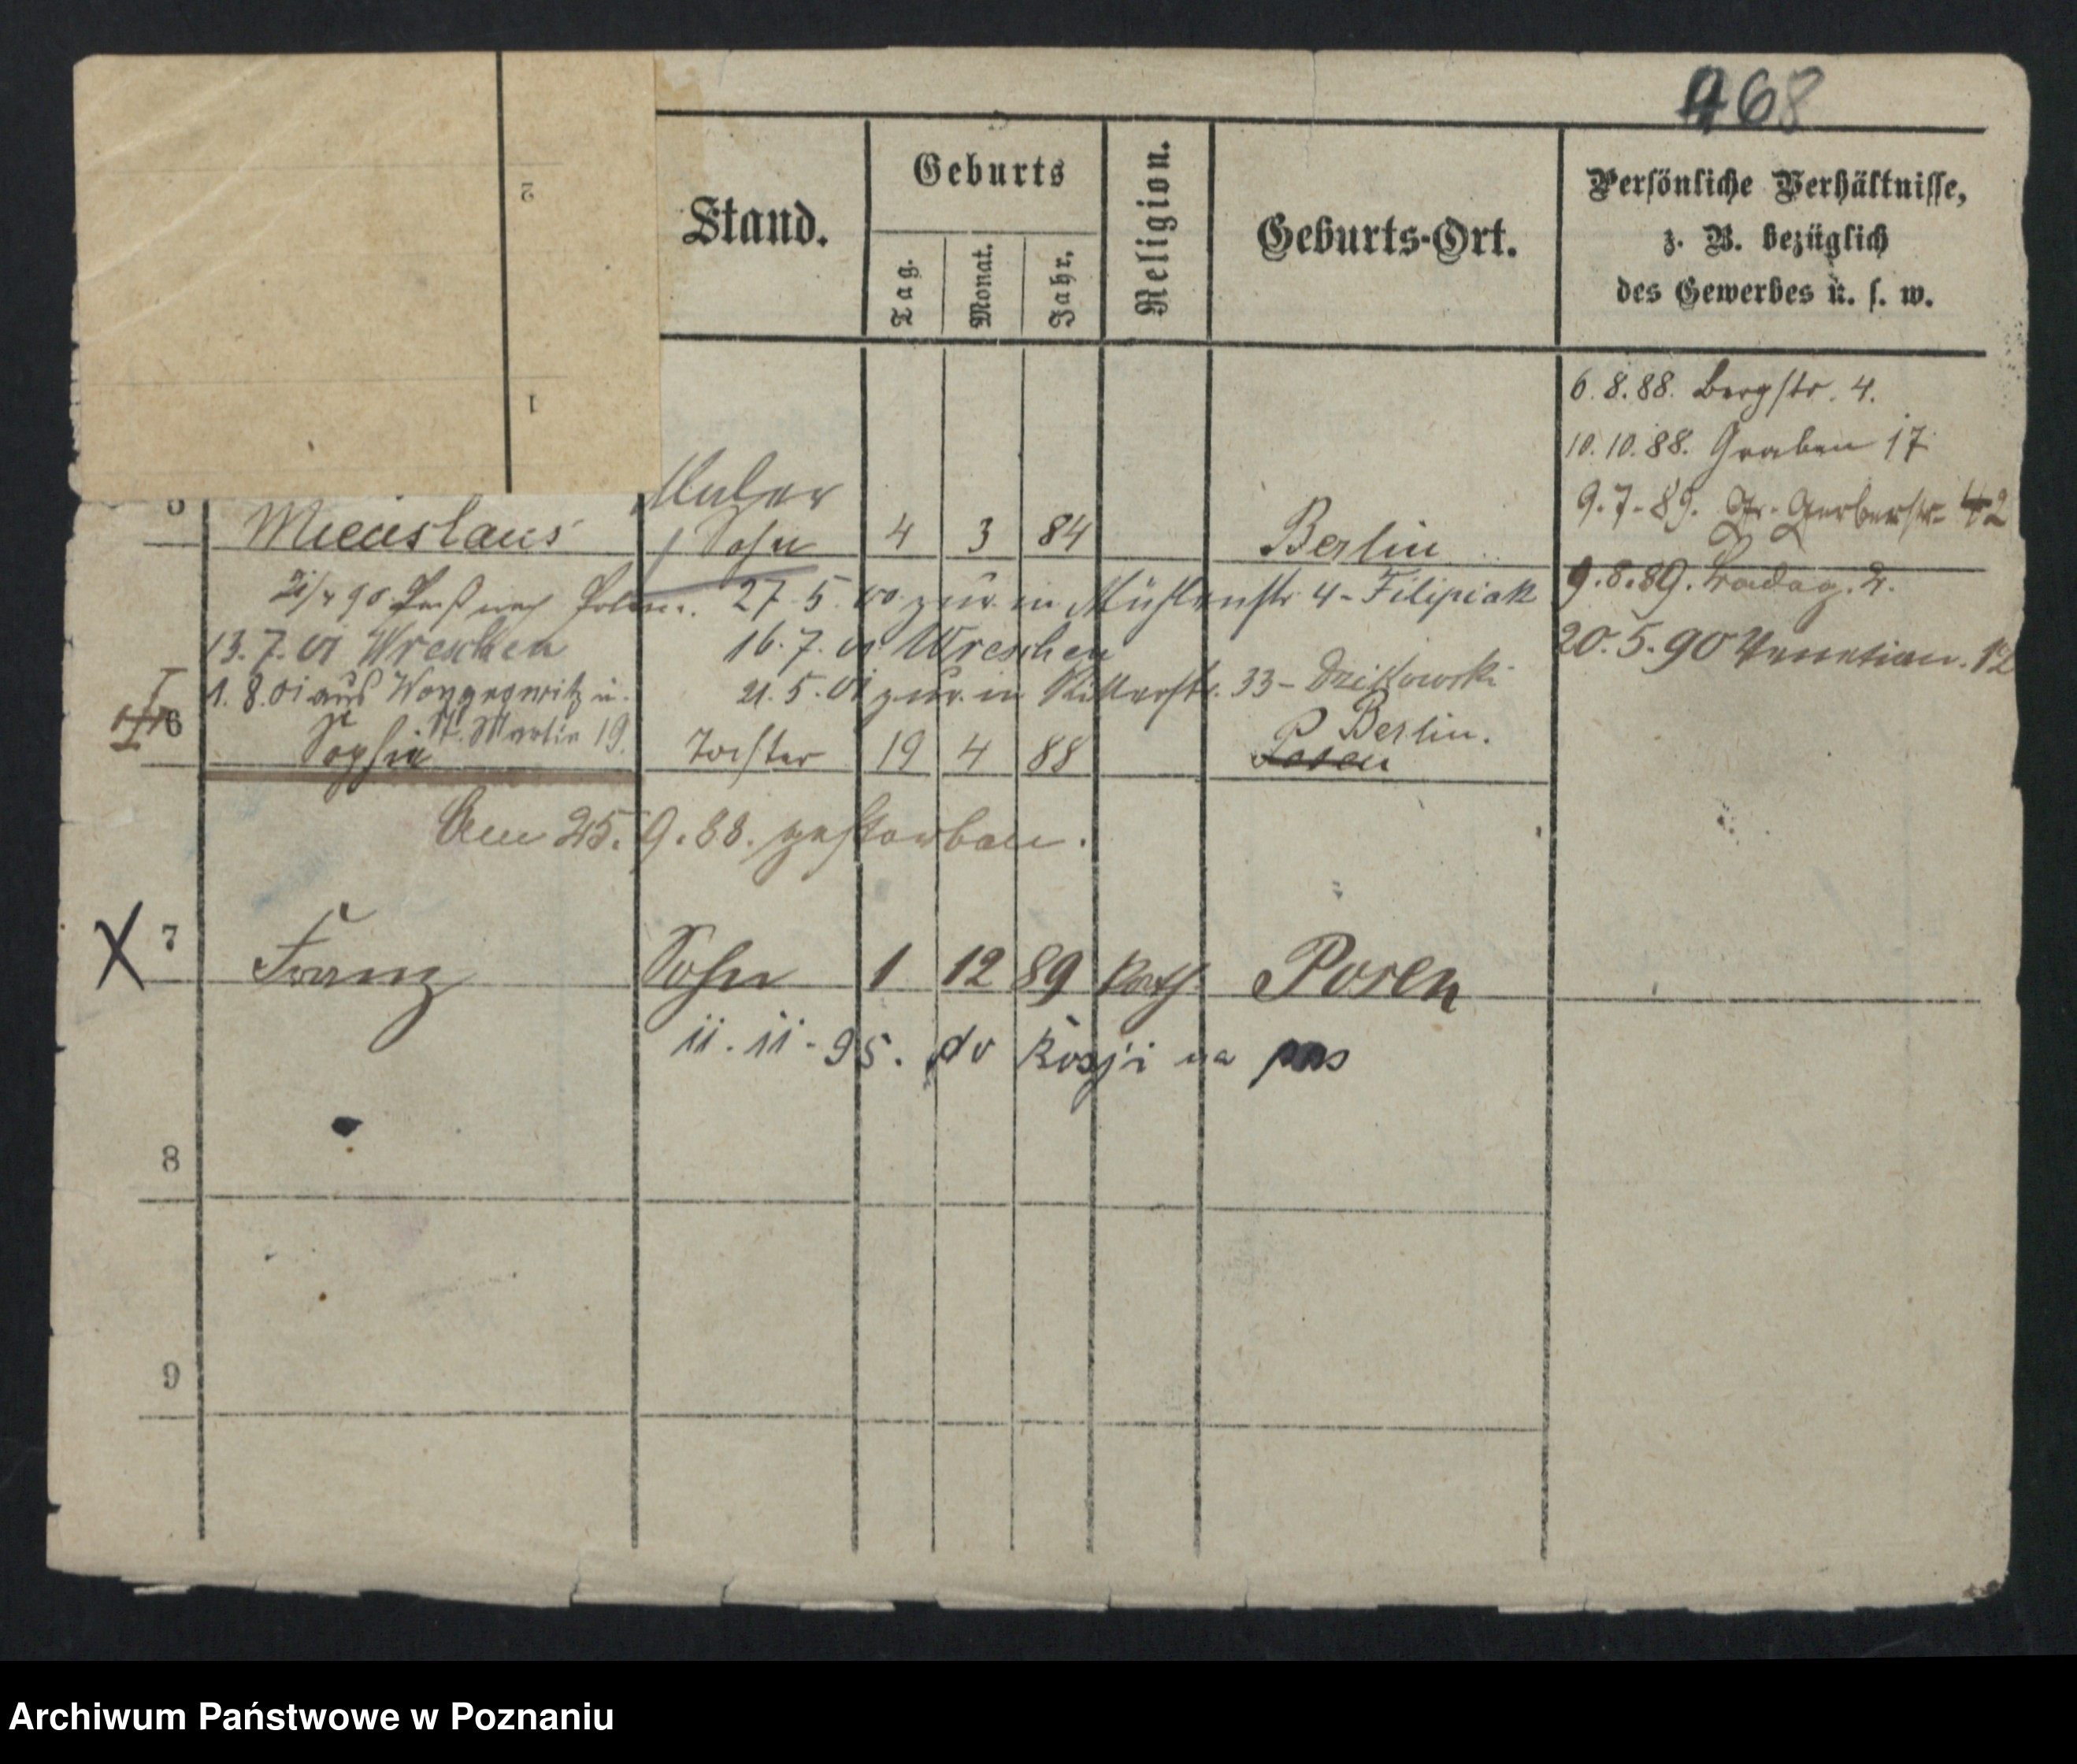 468
2
1
Stand.
Geburts
Tag.
Monat.
Jahr.
Religion.
Geburts-Ort.
Persönliche Verhältnisse,
z. B. bezüglich
des Gewerbes u. s. w.
6.8.88. Bergstr. 4.
10.10.88. Graben 17
9.7.89. Gr. Gerberstr. 42
9.8.89. 2.
20.5.90 Venetian. 12
Maler
5 Miecislaus Sohn 4 3 84 Berlin
21/4 90. Paß nach Polen. 27.5.00 zur. in Mühlenstr. 4 - Filipiak
13.7.01 Wreschen 16.7.01 Wreschen
1.8.01 aus Wongrowitz n. 21.5.01 zur. in Ritterstr. 33 - Dzikowski
St. Martin 19.
6 Sophie Tochter 19 4 88 Posen Berlin.
Am 25.9.88. gestorben.
X 7 Franz Sohn 1 12 89 kath. Posen
11.11.95. do Rosji na pas
8
9
Archiwum Państwowe w Poznaniu